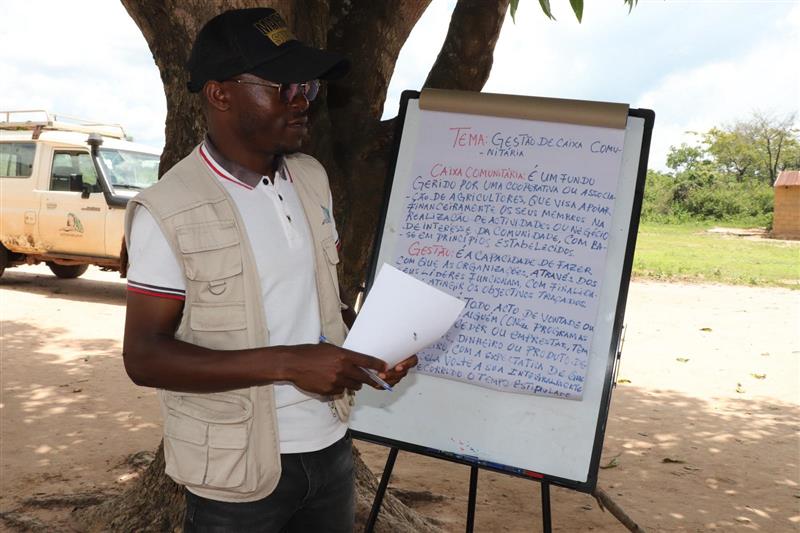 TEMA: GESTÃO DE CAIXA COMU-
-NITÁRIA
CAIXA COMUNITÁRIA: É UM FUNDO
GERIDO POR UMA COOPERATIVA OU ASSOCIA-
-ÇÃO DE AGRICULTORES, QUE VISA APOIAR
FINANCEIRAMENTE OS SEUS MEMBROS NA
REALIZAÇÃO DE ACTIVIDADES OU NEGÓCIO
DE INTERESSE DA COMUNIDADE, COM BA-
SE EM PRINCÍPIOS ESTABELECIDOS.
GESTÃO: É A CAPACIDADE DE FAZER
COM QUE AS ORGANIZAÇÕES, ATRAVÉS DOS
SEUS LÍDERES FUNCIONAM, COM FINALIDA-
ATINGIR OS OBJECTIVOS TRAÇADOS
TODO ACTO DE VONTADE OU
ALGUÉM (ONGs, PROGRAMAS
CEDER OU EMPRESTAR,
DINHEIRO OU PRODUTO DE
COM A EXPECTATIVA DE QUE
VOLTE A SUA INTEGRALMENTE
DECORRIDO O TEMPO ESTIPULADO